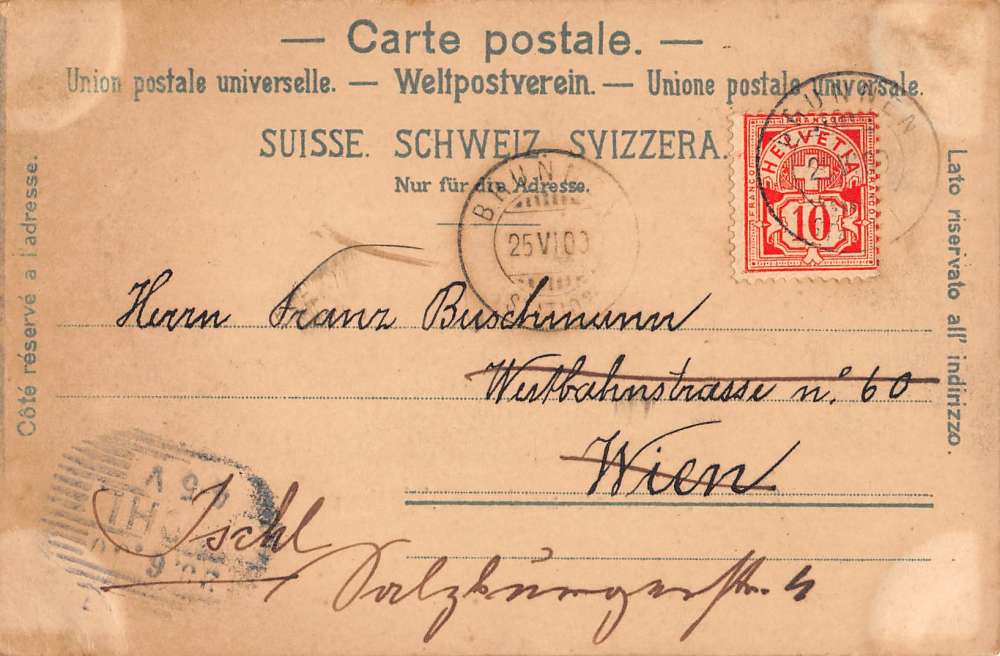 — Carte postale. —
Union postale universelle. — Weltpostverein. — Unione postale universale.
SUISSE. SCHWEIZ. SVIZZERA.
Nur für die Adresse.
Côté réservé à l'adresse.
Lato riservato all' indirizzo.
BRUNNEN
25 VI 00
BRUNNEN
FRANCO
HELVETIA
FRANCO
10
Herrn Franz Buschmann
Westbahnstrasse nº. 60
Wien
Ischl
Salzburgerstr. 4
ISCHL